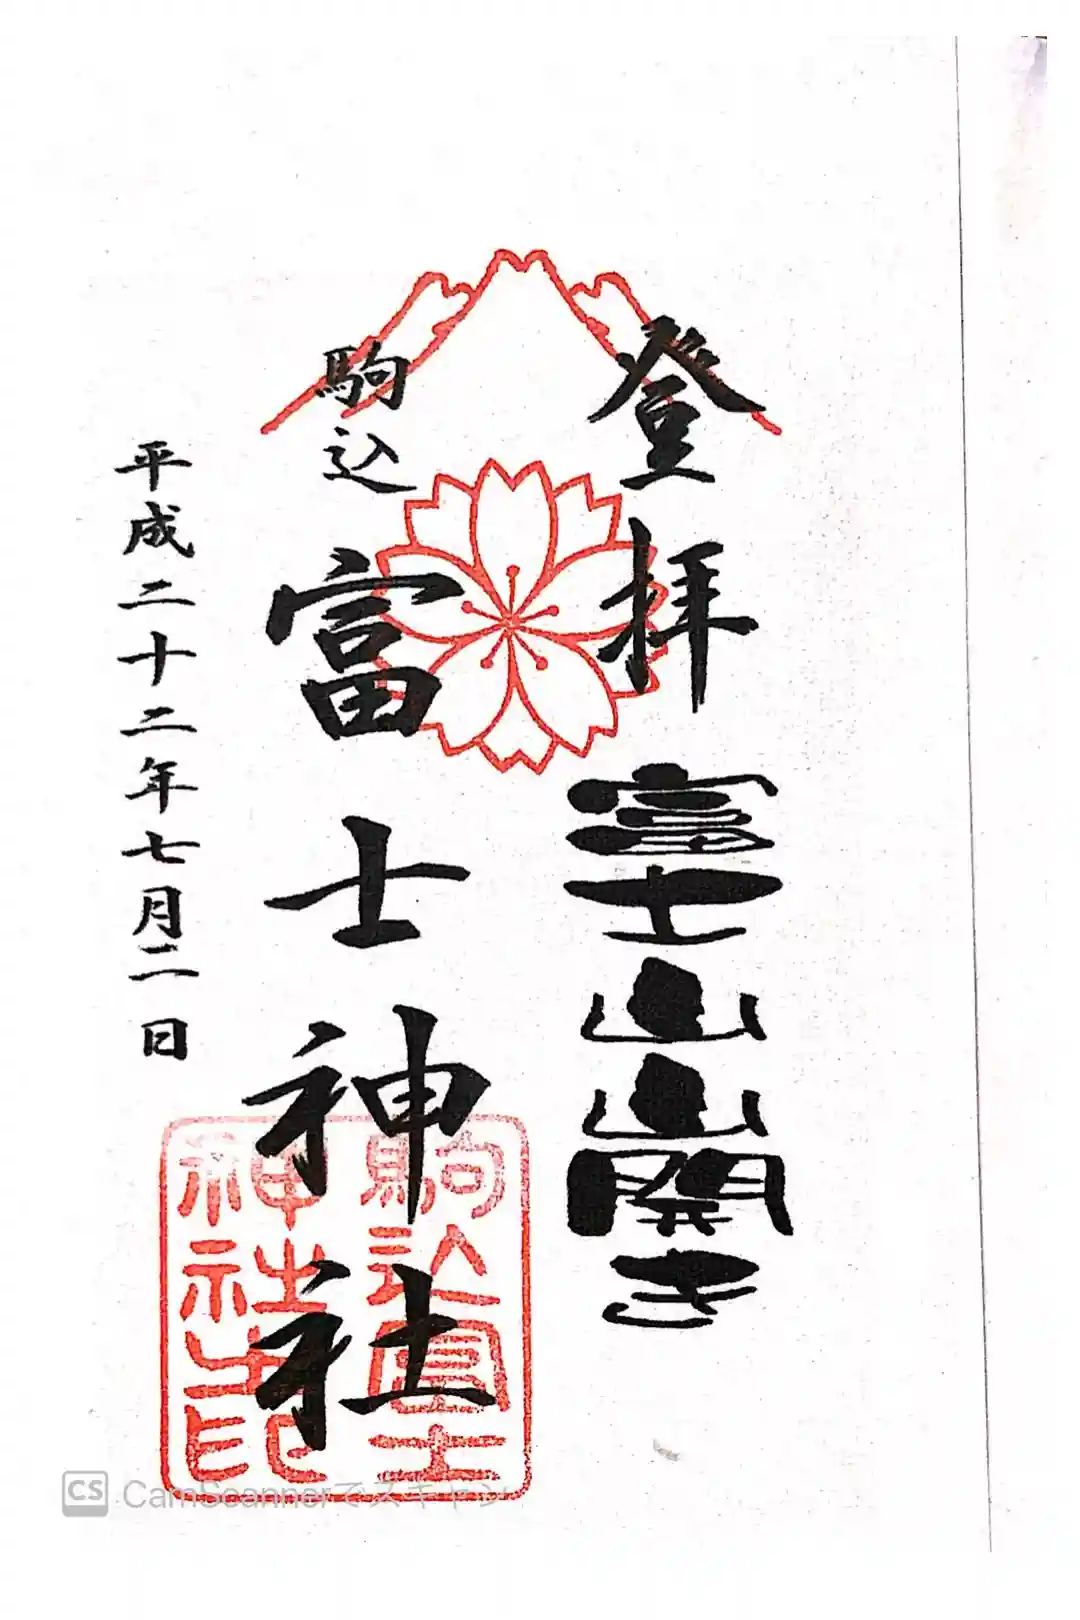 登拝
富士山山開き
駒込
富士神社
平成二十二年七月二日
駒込富士
神社之印
CS CamScannerでスキャン